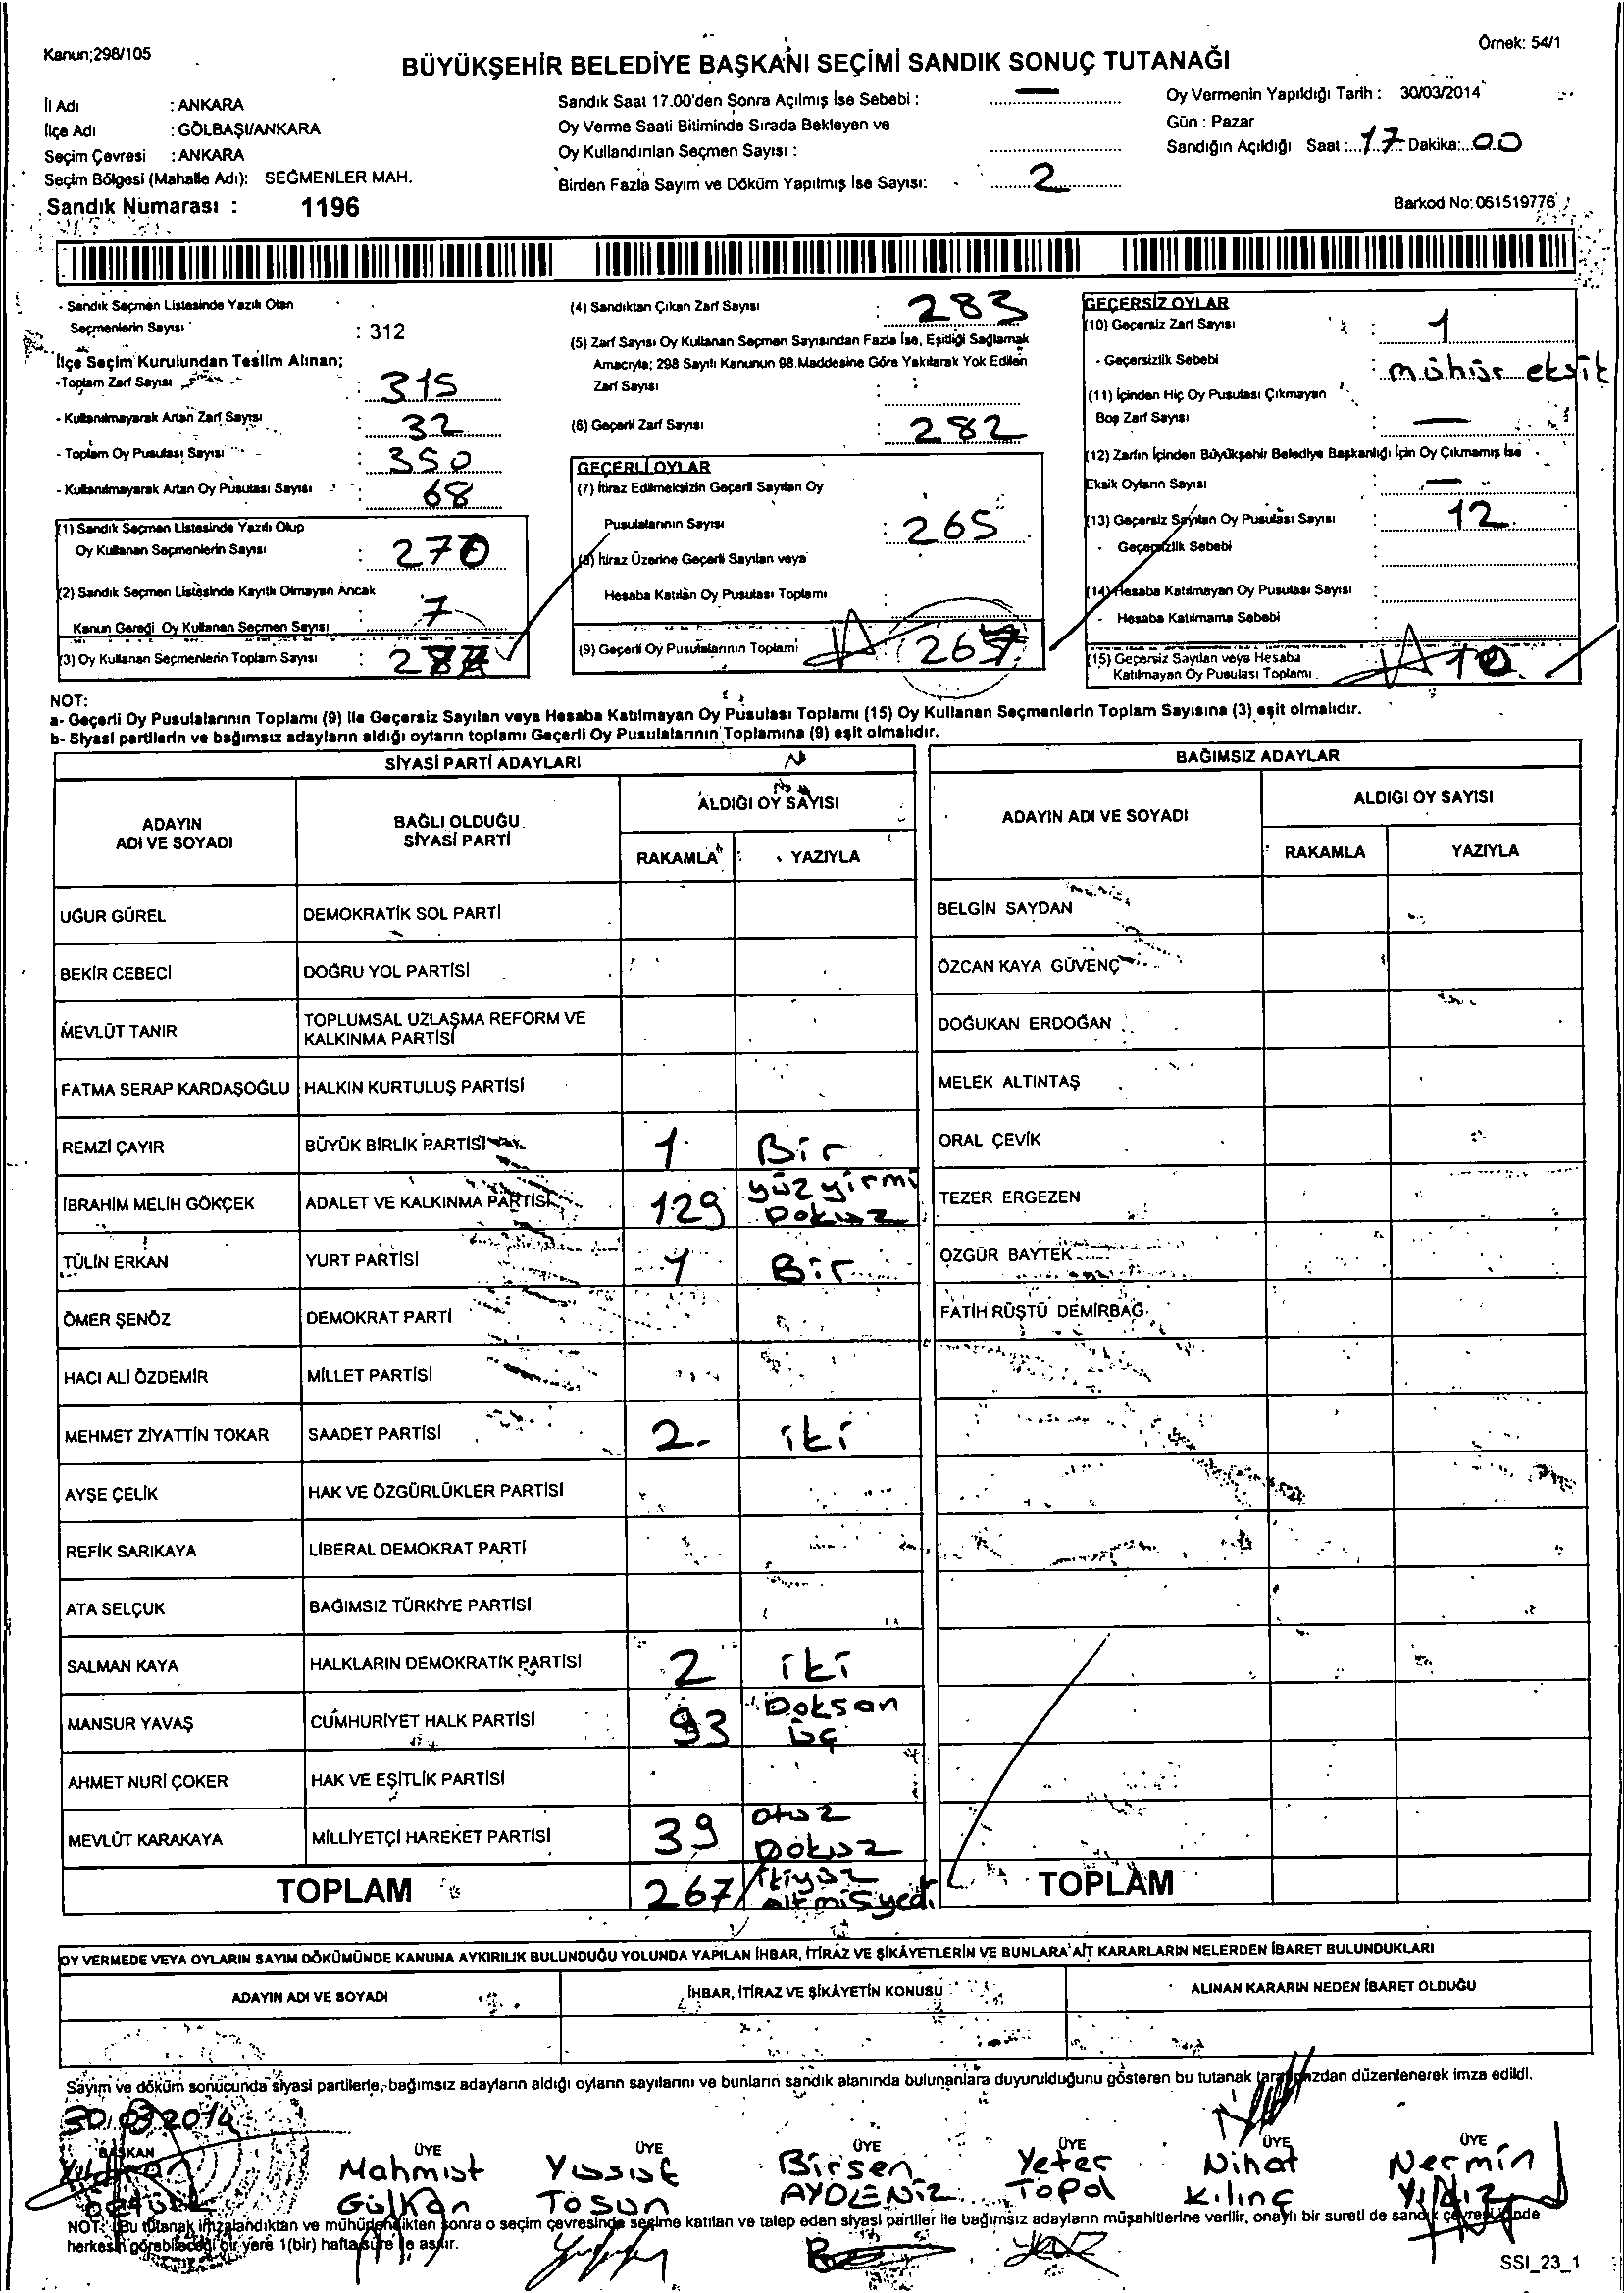 Kanun;298/105
Örnek: 54/1
BÜYÜKŞEHİR BELEDİYE BAŞKANI SEÇİMİ SANDIK SONUÇ TUTANAĞI
İl Adı : ANKARA
İlçe Adı : GÖLBAŞI/ANKARA
Seçim Çevresi : ANKARA
Seçim Bölgesi (Mahalle Adı): SEĞMENLER MAH.
Sandık Numarası : 1196
Sandık Saat 17.00'den Sonra Açılmış İse Sebebi : —
Oy Verme Saati Bitiminde Sırada Bekleyen ve
Oy Kullandırılan Seçmen Sayısı :
Birden Fazla Sayım ve Döküm Yapılmış İse Sayısı: 2
Oy Vermenin Yapıldığı Tarih : 30/03/2014
Gün : Pazar
Sandığın Açıldığı Saat : 17 Dakika: 00
Barkod No: 061519776
- Sandık Seçmen Listesinde Yazılı Olan
Seçmenlerin Sayısı : 312
İlçe Seçim Kurulundan Teslim Alınan;
-Toplam Zarf Sayısı : 315
- Kullanılmayarak Artan Zarf Sayısı : 32
- Toplam Oy Pusulası Sayısı : 350
- Kullanılmayarak Artan Oy Pusulası Sayısı : 68
(1) Sandık Seçmen Listesinde Yazılı Olup
Oy Kullanan Seçmenlerin Sayısı : 270
(2) Sandık Seçmen Listesinde Kayıtlı Olmayan Ancak
Kanun Gereği Oy Kullanan Seçmen Sayısı 7
(3) Oy Kullanan Seçmenlerin Toplam Sayısı :
(4) Sandıktan Çıkan Zarf Sayısı : 283
(5) Zarf Sayısı Oy Kullanan Seçmen Sayısından Fazla İse, Eşitliği Sağlamak
Amacıyla; 298 Sayılı Kanunun 98.Maddesine Göre Yakılarak Yok Edilen
Zarf Sayısı :
(6) Geçerli Zarf Sayısı : 282
GEÇERLİ OYLAR
(7) İtiraz Edilmeksizin Geçerli Sayılan Oy
Pusulalarının Sayısı : 265
(8) İtiraz Üzerine Geçerli Sayılan veya
Hesaba Katılan Oy Pusulası Toplamı :
(9) Geçerli Oy Pusulalarının Toplamı 267
GEÇERSİZ OYLAR
(10) Geçersiz Zarf Sayısı : 1
- Geçersizlik Sebebi : mühür eksik
(11) İçinden Hiç Oy Pusulası Çıkmayan
Boş Zarf Sayısı : —
(12) Zarfın İçinden Büyükşehir Belediye Başkanlığı İçin Oy Çıkmamış İse
Eksik Oyların Sayısı : —
(13) Geçersiz Sayılan Oy Pusulası Sayısı : 12
- Geçersizlik Sebebi :
(14) Hesaba Katılmayan Oy Pusulası Sayısı :
- Hesaba Katılmama Sebebi :
(15) Geçersiz Sayılan veya Hesaba
Katılmayan Oy Pusulası Toplamı 10
NOT:
a- Geçerli Oy Pusulalarının Toplamı (9) ile Geçersiz Sayılan veya Hesaba Katılmayan Oy Pusulası Toplamı (15) Oy Kullanan Seçmenlerin Toplam Sayısına (3) eşit olmalıdır.
b- Siyasi partilerin ve bağımsız adayların aldığı oyların toplamı Geçerli Oy Pusulalarının Toplamına (9) eşit olmalıdır.
SİYASİ PARTİ ADAYLARI
ADAYIN ADI VE SOYADI
BAĞLI OLDUĞU SİYASİ PARTİ
ALDIĞI OY SAYISI
RAKAMLA YAZIYLA
UĞUR GÜREL DEMOKRATİK SOL PARTİ
BEKİR CEBECİ DOĞRU YOL PARTİSİ
MEVLÜT TANIR TOPLUMSAL UZLAŞMA REFORM VE KALKINMA PARTİSİ
FATMA SERAP KARDAŞOĞLU HALKIN KURTULUŞ PARTİSİ
REMZİ ÇAYIR BÜYÜK BİRLİK PARTİSİ 1 Bir
İBRAHİM MELİH GÖKÇEK ADALET VE KALKINMA PARTİSİ 129 yüz yirmi Dokuz
TÜLİN ERKAN YURT PARTİSİ 1 Bir
ÖMER ŞENÖZ DEMOKRAT PARTİ
HACI ALİ ÖZDEMİR MİLLET PARTİSİ
MEHMET ZİYATTİN TOKAR SAADET PARTİSİ 2 iki
AYŞE ÇELİK HAK VE ÖZGÜRLÜKLER PARTİSİ
REFİK SARIKAYA LİBERAL DEMOKRAT PARTİ
ATA SELÇUK BAĞIMSIZ TÜRKİYE PARTİSİ
SALMAN KAYA HALKLARIN DEMOKRATİK PARTİSİ 2 iki
MANSUR YAVAŞ CUMHURİYET HALK PARTİSİ 93 Doksan üç
AHMET NURİ ÇOKER HAK VE EŞİTLİK PARTİSİ
MEVLÜT KARAKAYA MİLLİYETÇİ HAREKET PARTİSİ 39 otuz Dokuz
TOPLAM 267 ikiyüz altmışyedi
BAĞIMSIZ ADAYLAR
ADAYIN ADI VE SOYADI
ALDIĞI OY SAYISI
RAKAMLA YAZIYLA
BELGİN SAYDAN
ÖZCAN KAYA GÜVENÇ
DOĞUKAN ERDOĞAN
MELEK ALTINTAŞ
ORAL ÇEVİK
TEZER ERGEZEN
ÖZGÜR BAYTEK
FATİH RÜŞTÜ DEMİRBAĞ
TOPLAM
OY VERMEDE VEYA OYLARIN SAYIM DÖKÜMÜNDE KANUNA AYKIRILIK BULUNDUĞU YOLUNDA YAPILAN İHBAR, İTİRAZ VE ŞİKÂYETLERİN VE BUNLARA AİT KARARLARIN NELERDEN İBARET BULUNDUKLARI
ADAYIN ADI VE SOYADI
İHBAR, İTİRAZ VE ŞİKÂYETİN KONUSU
ALINAN KARARIN NEDEN İBARET OLDUĞU
Sayım ve döküm sonucunda siyasi partilerle, bağımsız adayların aldığı oyların sayılarını ve bunların sandık alanında bulunanlara duyurulduğunu gösteren bu tutanak tarafımızdan düzenlenerek imza edildi.
30.03.2014
BAŞKAN ÜYE ÜYE ÜYE ÜYE ÜYE ÜYE
Mahmut Yusuf Birsen Yeter Nihat Nermin
Öztürk Gülkan Tosun AYDENİZ Topal Kılınç Yıldız
NOT: Bu tutanak imzalandıktan ve mühürlendikten sonra o seçim çevresinde seçime katılan ve talep eden siyasi partiler ile bağımsız adayların müşahitlerine verilir, onaylı bir sureti de sandık çevresinde
herkesin görebileceği bir yere 1(bir) hafta süre ile asılır.
SSI_23_1